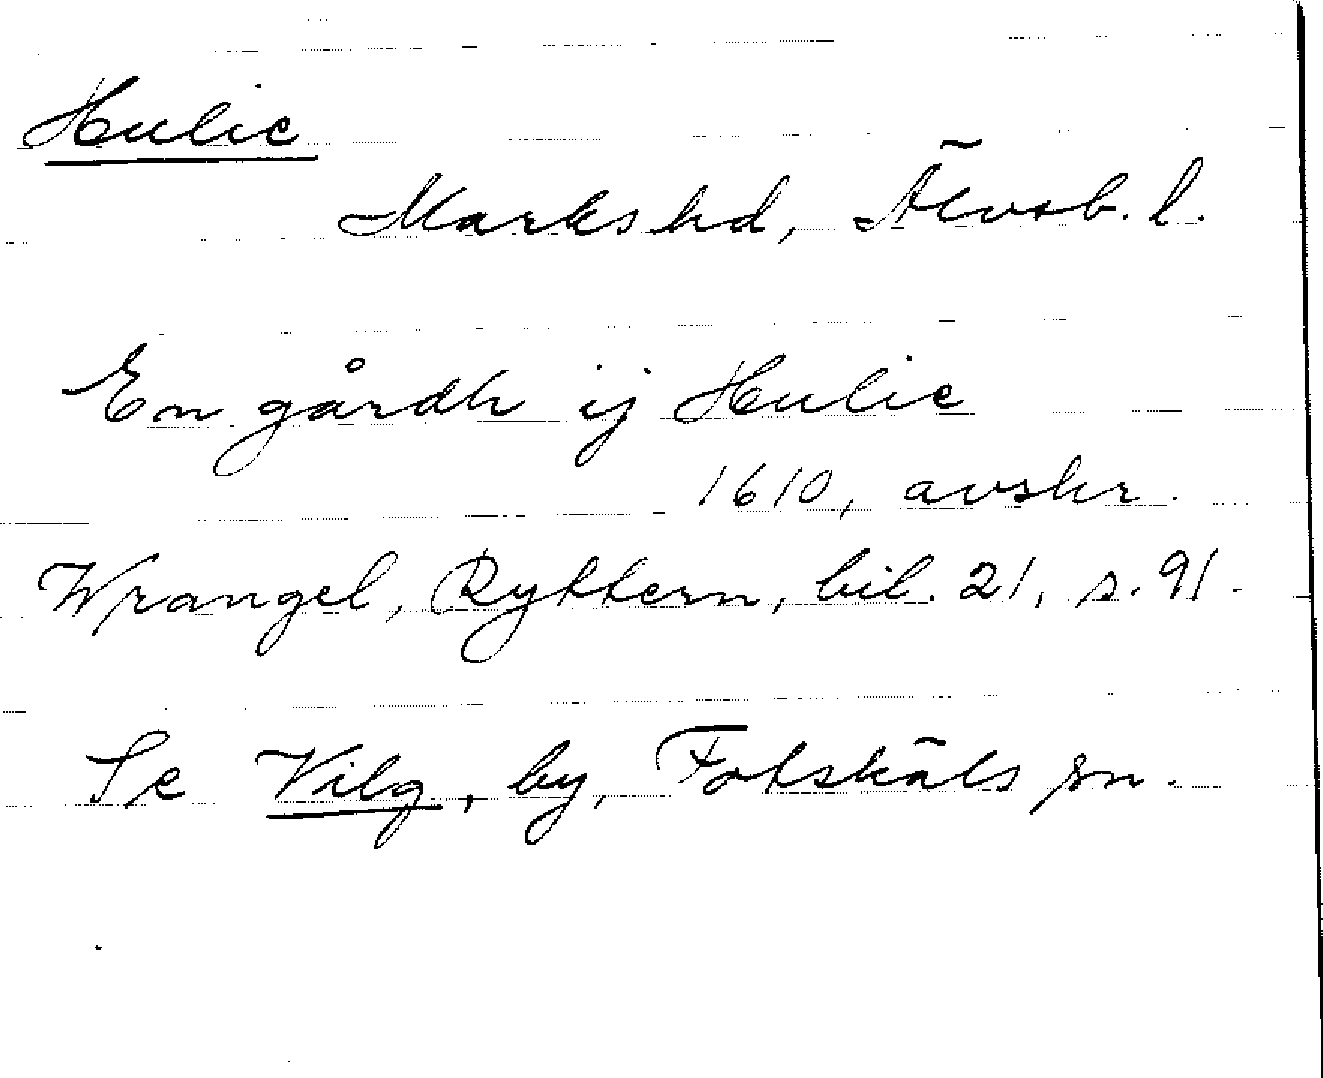 Hulie
Marks hd, Älvsb. l.
En gårdh ij Hulie
1610, avskr.
Wrangel, Ryttern, bil. 21, s. 91.
Se Vilg, by, Fotskäls sn.